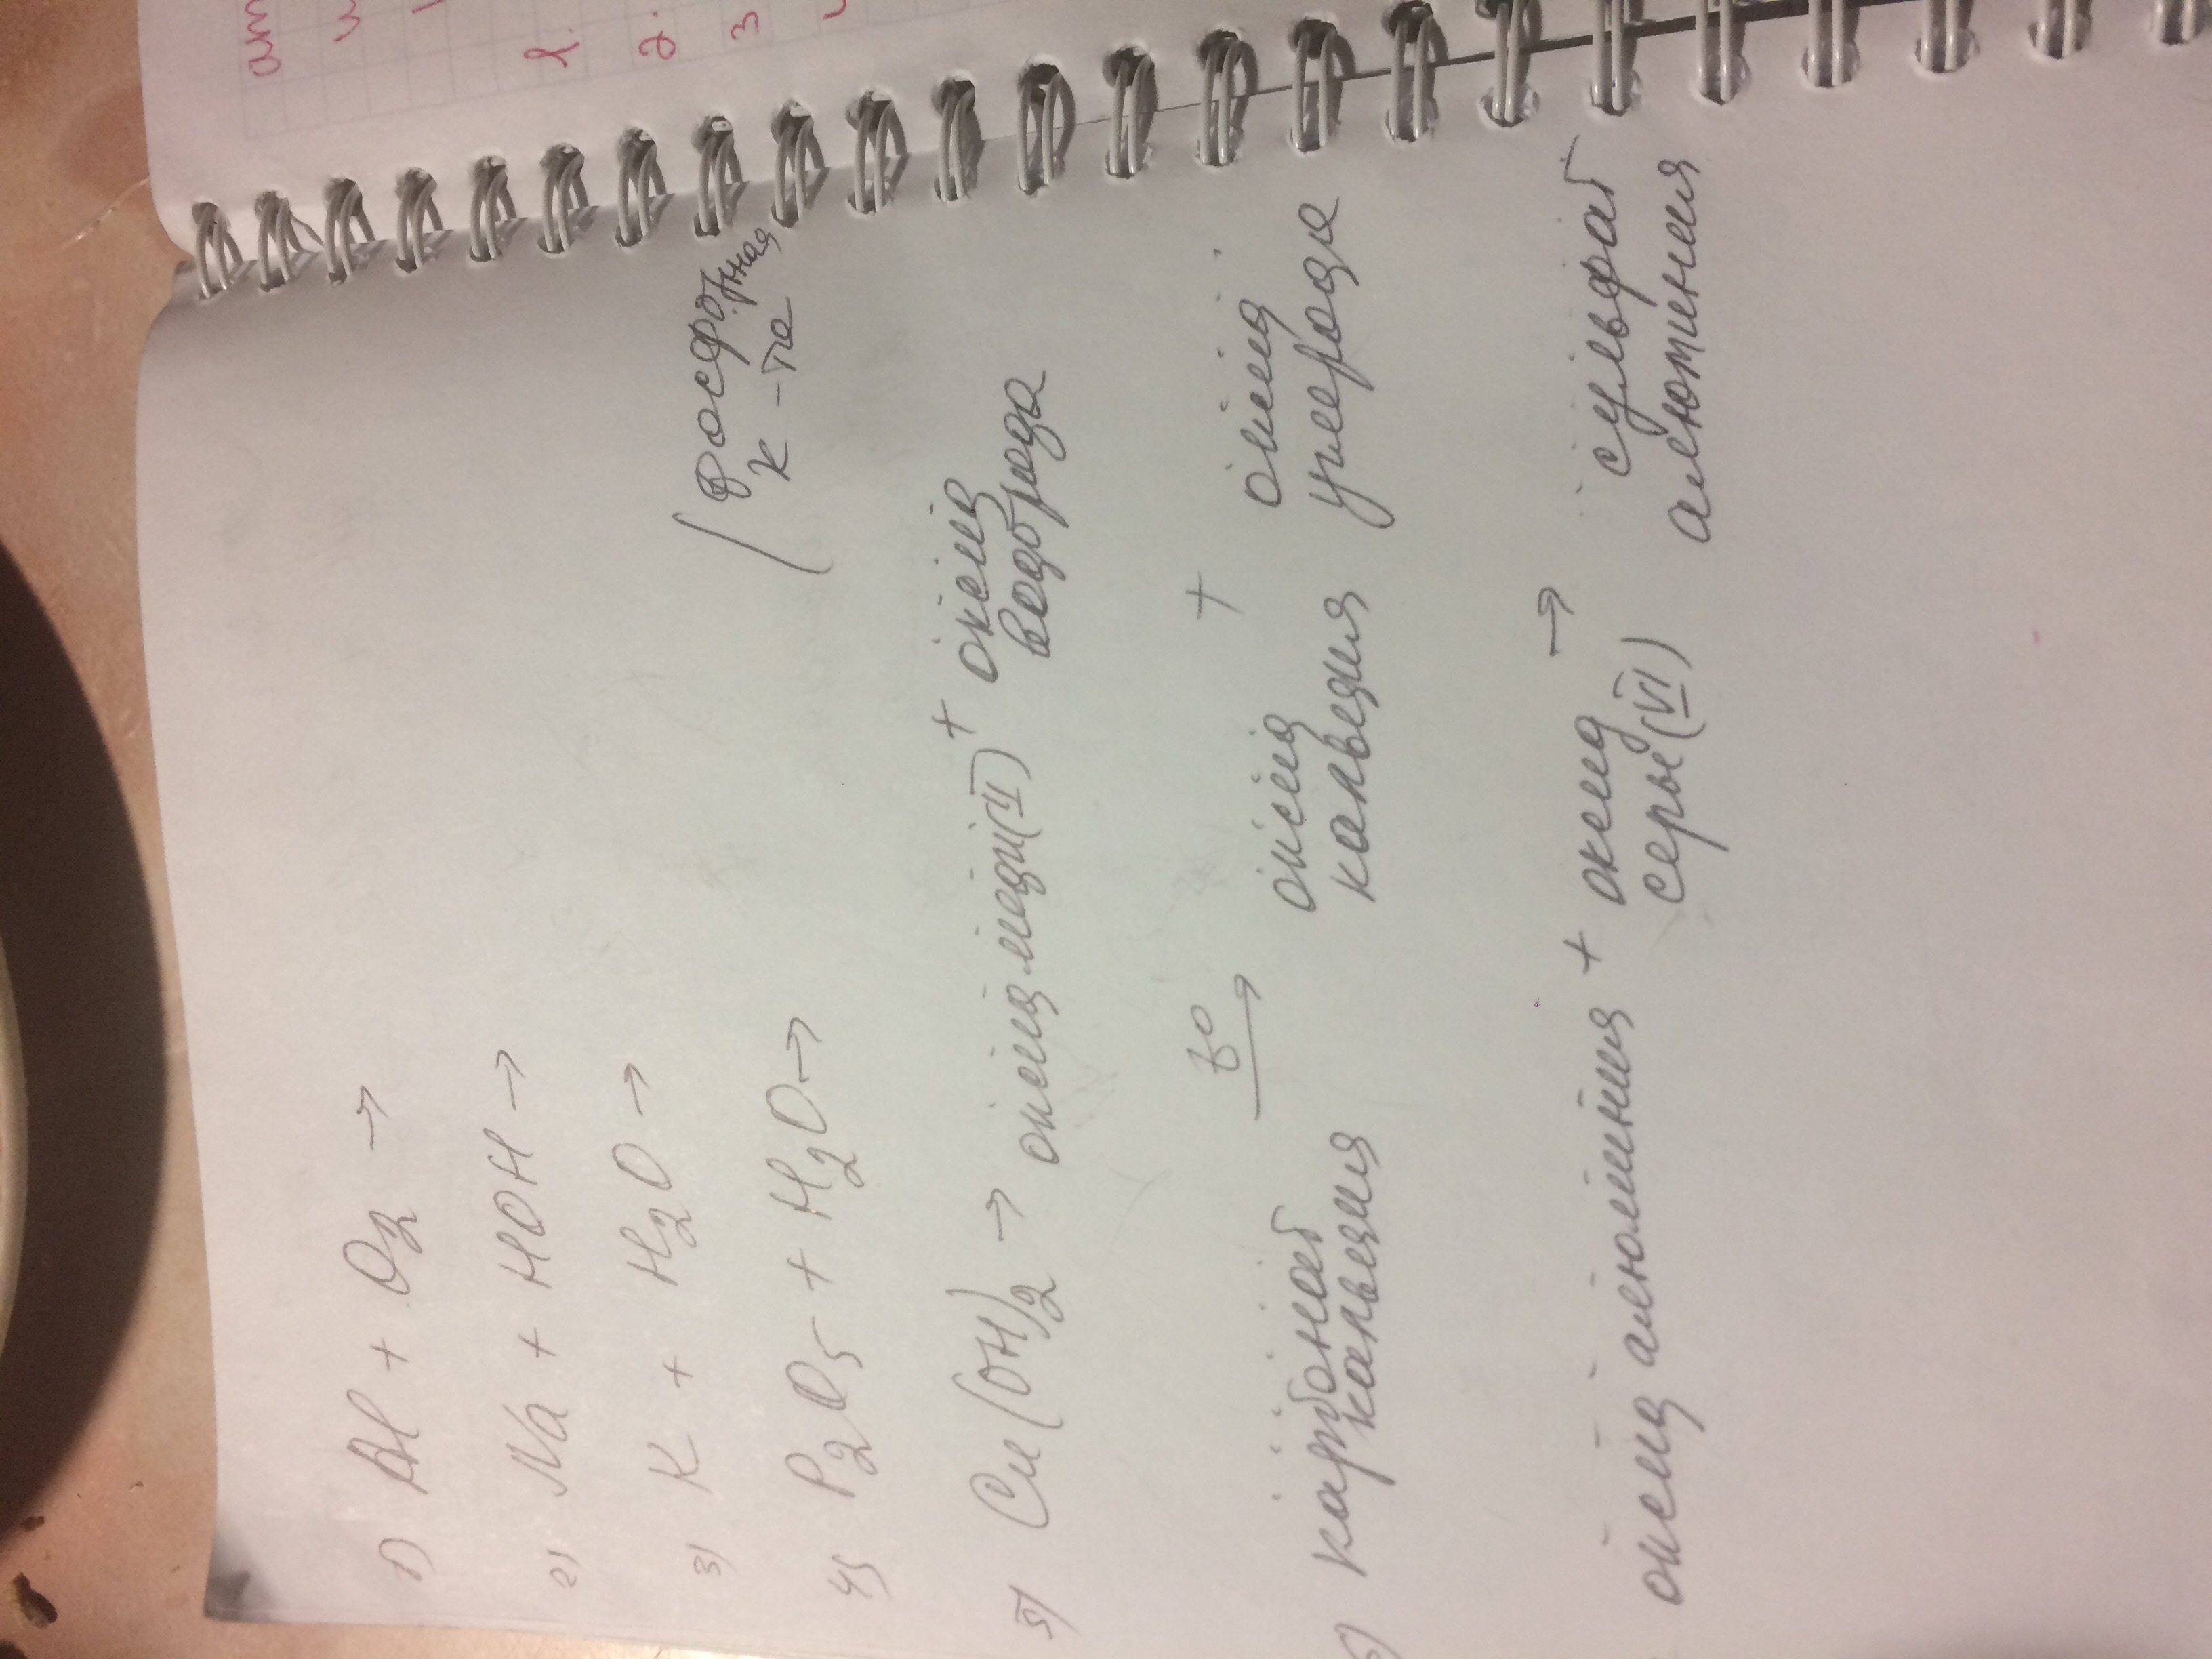 1) Al + O₂ →
2) Na + HOH →
3) K + H₂O →
4) P₂O₅ + H₂O → (фосфорная
к-та
5) Cu(OH)₂ → оксид меди(II) + оксид
водорода
6) карбонат t° → оксид + оксид
кальция кальция углерода
оксид алюминия + оксид → сульфат
серы(VI) алюминия
1.
2.
3